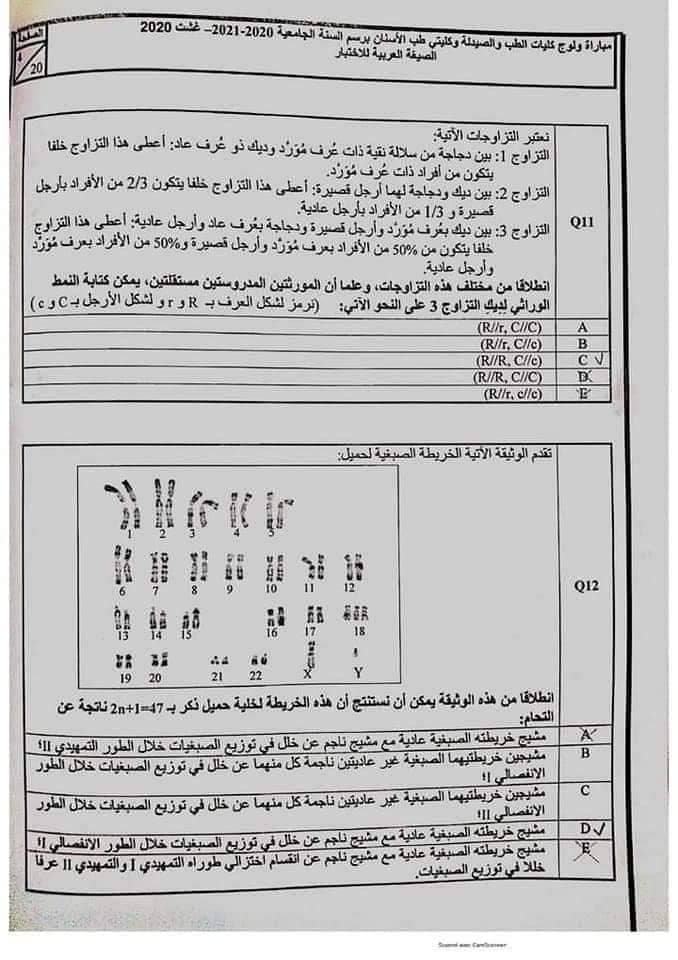 مباراة ولوج كليات الطب والصيدلة وكليتي طب الأسنان برسم السنة الجامعية 2020-2021– غشت 2020
الصيغة العربية للاختبار
الصفحة
4
20
Q11
نعتبر التزاوجات الآتية:
التزاوج 1: بين دجاجة من سلالة نقية ذات عُرف مُوَرَّد وديك ذو عُرف عاد: أعطى هذا التزاوج خلفا
يتكون من أفراد ذات عُرف مُوَرَّد.
التزاوج 2: بين ديك ودجاجة لهما أرجل قصيرة: أعطى هذا التزاوج خلفا يتكون 2/3 من الأفراد بأرجل
قصيرة و 1/3 من الأفراد بأرجل عادية.
التزاوج 3: بين ديك بعُرف مُوَرَّد وأرجل قصيرة ودجاجة بعُرف عاد وأرجل عادية: أعطى هذا التزاوج
خلفا يتكون من 50% من الأفراد بعرف مُوَرَّد وأرجل قصيرة و50% من الأفراد بعرف مُوَرَّد
وأرجل عادية.
انطلاقا من مختلف هذه التزاوجات، وعلما أن المورثتين المدروستين مستقلتين، يمكن كتابة النمط
الوراثي لِديك التزاوج 3 على النحو الآتي: (نرمز لشكل العرف بـ R و r و لشكل الأرجل بـ C و c)
A (R//r, C//C)
B (R//r, C//c)
C ✓ (R//R, C//c)
D (R//R, C//C)
E (R//r, c//c)
Q12
تقدم الوثيقة الآتية الخريطة الصبغية لحميل:
1 2 3 4 5
6 7 8 9 10 11 12
13 14 15 16 17 18
19 20 21 22 X Y
انطلاقا من هذه الوثيقة يمكن أن نستنتج أن هذه الخريطة لخلية حميل ذكر بـ 2n+1=47 ناتجة عن
التحام:
A مشيج خريطته الصبغية عادية مع مشيج ناجم عن خلل في توزيع الصبغيات خلال الطور التمهيدي II؛
B مشيجين خريطتيهما الصبغية غير عاديتين ناجمة كل منهما عن خلل في توزيع الصبغيات خلال الطور
الانفصالي I؛
C مشيجين خريطتيهما الصبغية غير عاديتين ناجمة كل منهما عن خلل في توزيع الصبغيات خلال الطور
الانفصالي II؛
D ✓ مشيج خريطته الصبغية عادية مع مشيج ناجم عن خلل في توزيع الصبغيات خلال الطور الانفصالي I؛
E مشيج خريطته الصبغية عادية مع مشيج ناجم عن انقسام اختزالي طوراه التمهيدي I والتمهيدي II عرفا
خللا في توزيع الصبغيات.
Scanned with CamScanner